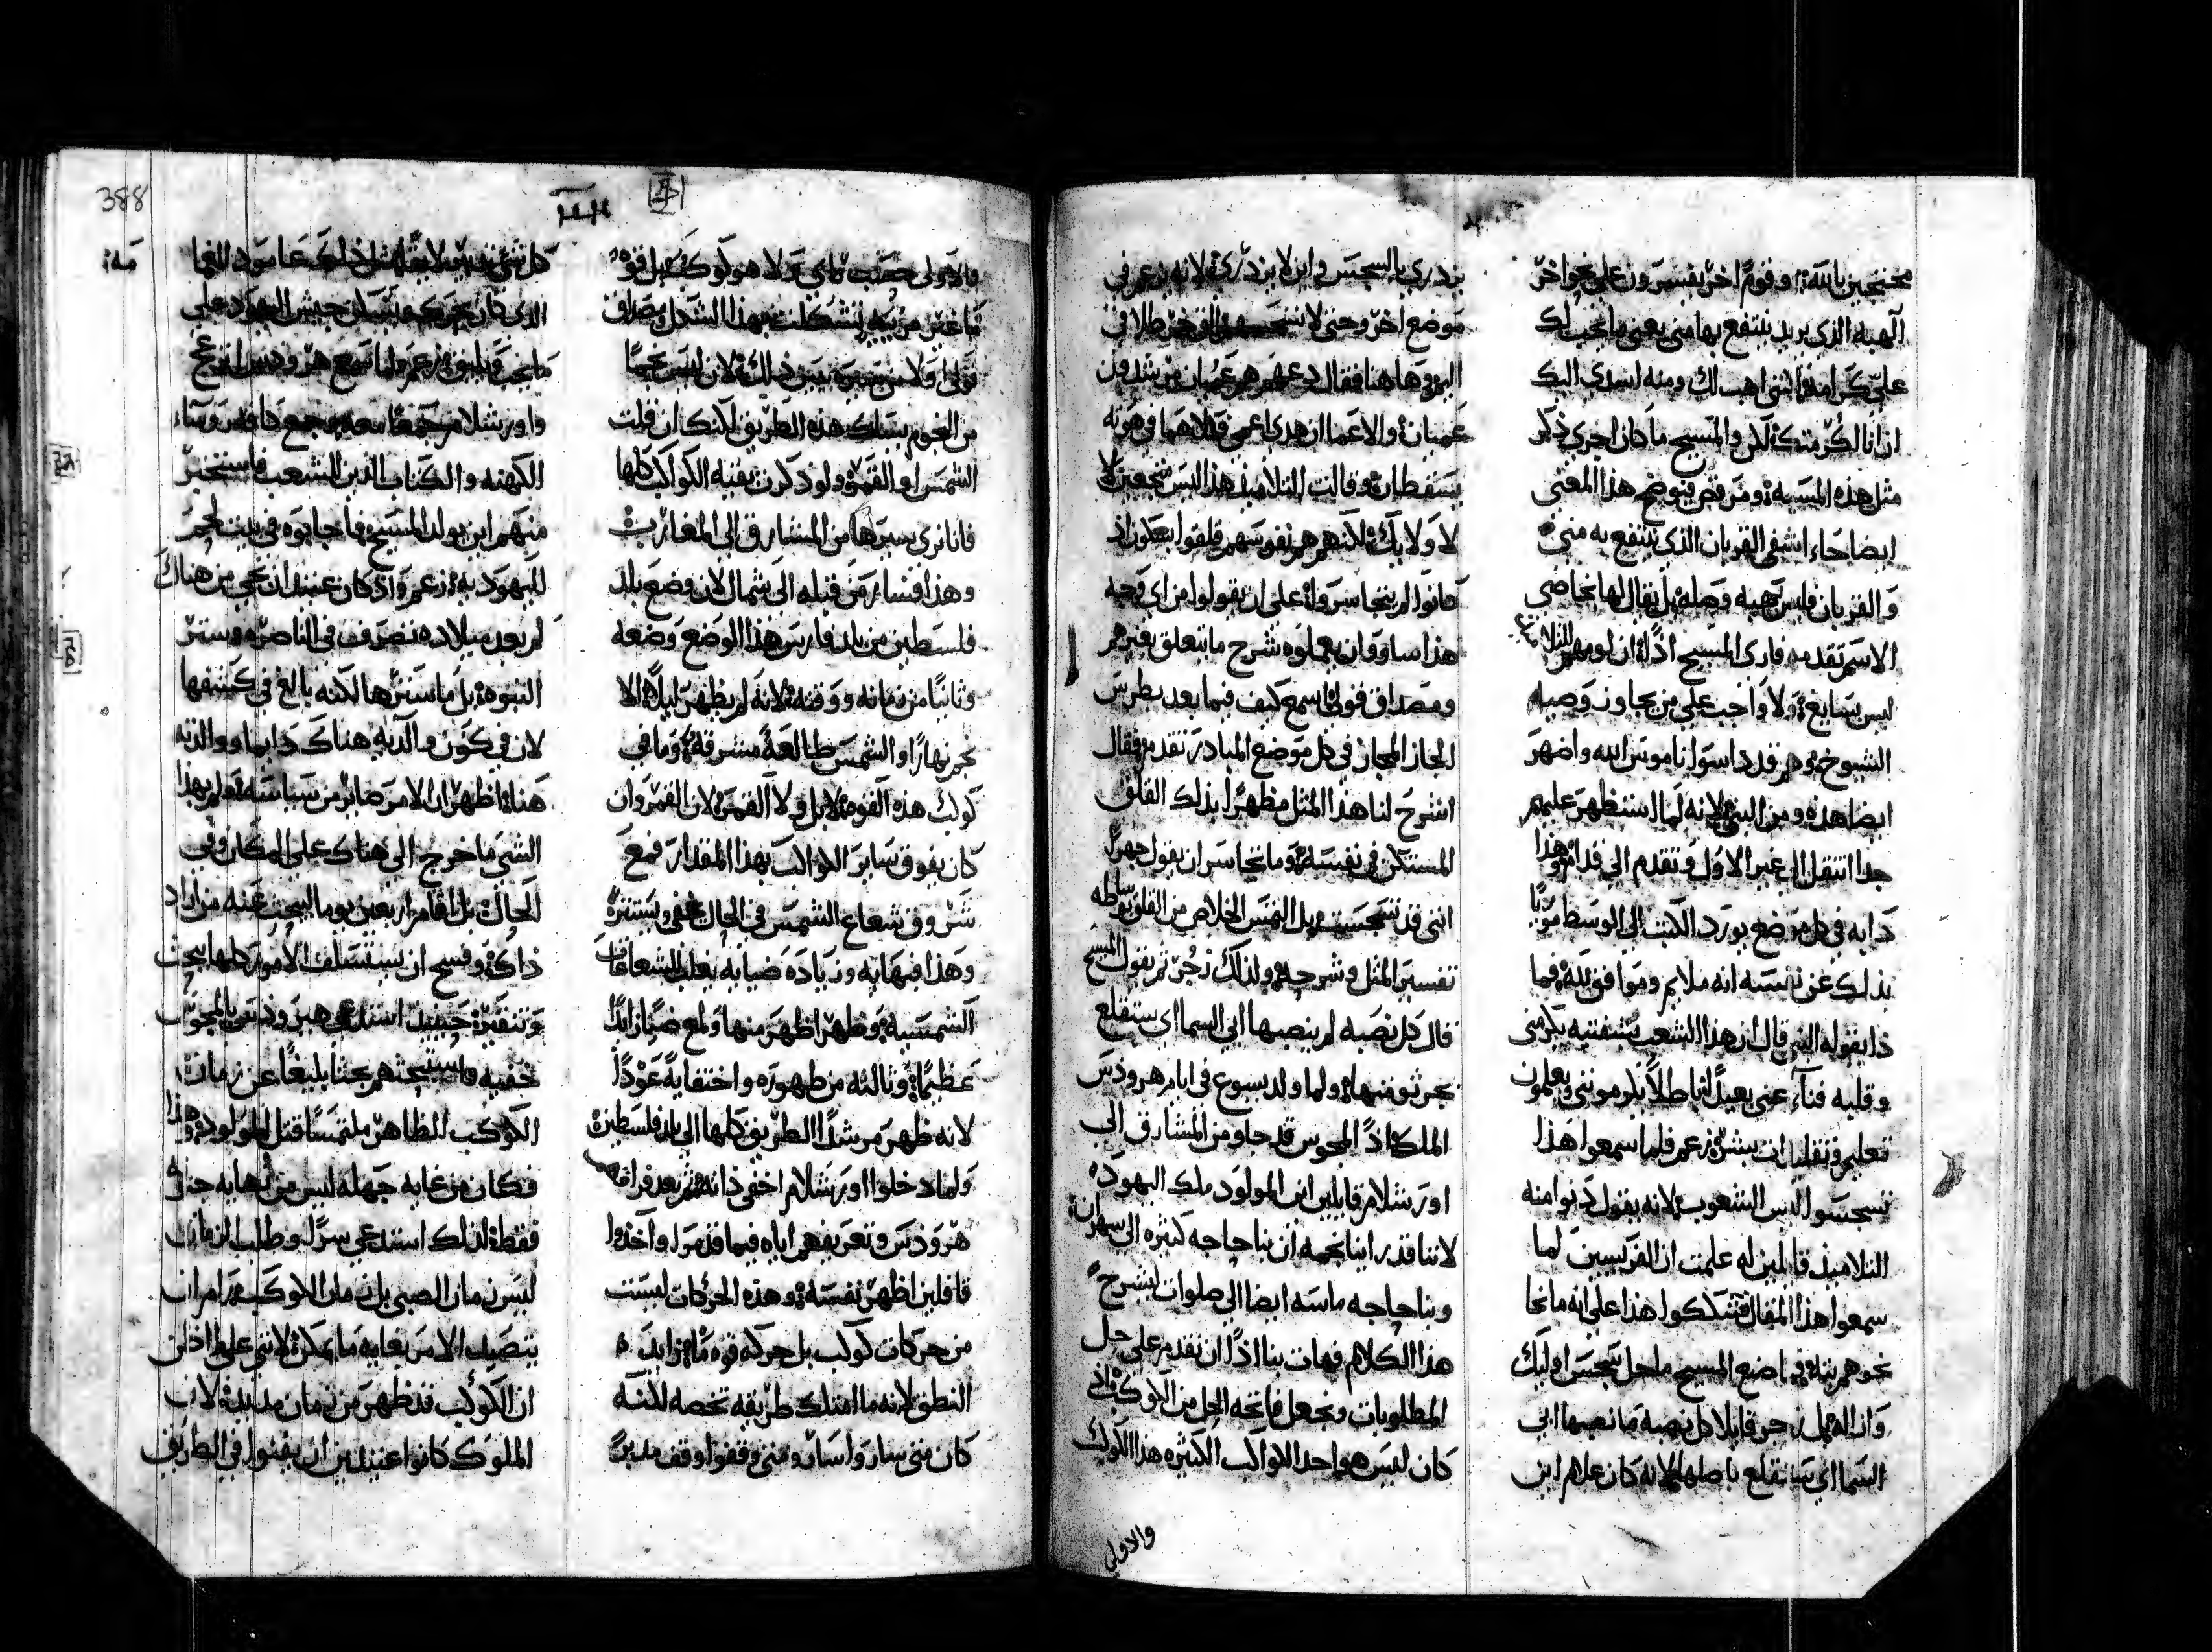 محتجين بالله وقوم اخر يفسرون على نحو اخر
الهبه الذي يريد ينتفع بها مني يعني ما يجب لك
علي كرامه فانني اهب لك ومنه اسدي اليك
ان انا اكرمتك لان والمسيح ما كان اجري ذكر
مثل هذه المسبه ومرقص فيوضح هذا المعنى
ايضا جاء اشفي القربان الذي تنتفع به مني
والقربان فليس تهيه وصله بل يقال لها بخاصي
الاسم تقدمه فاري المسيح اذًا ان لومهم للتلاميذ
ليس بسايغ ولا واجب على من يجاوز وصيه
الشيوخ وهم قد داسوا ناموس الله واضهر
ايضا هذه ومن النبي لانه لما استظهر عليهم
جدا انتقل الى غير الاول وتقدم الى قدام وهذا
دابه في كل موضع يورد الكتب الى الوسط مريًا
بذلك عن نفسه انه ملايم وموافق لله فما
ذا يقوله النبي قال ان هذا الشعب بشفتيه يكرمني
وقلبه فناء عني بعيدًا باطلاً يكرمونني ويعلمون
تعليم وتقليدات بشر زعم فلما سمعوا هذا
تنجسوا الدين الشعوب لانه يقول دنوا منه
التلاميذ قايلين له علمت ان الفريسين لما
سمعوا هذا المقال فتشككوا هذا على انه ما نحا
نحوهم بته وفي اضع المسيح ما حل بتجس اوليك
وان اله مل زجر قايلا كل نصبة ما نصبها ابي
السما اي ستقلع باصلها لانه كان علام اين
يزدري بالسجس واين لا يزدري لانه زعم في
موضع اخر وحتي لا
اليه وها هنا فقال دعهم هم عميان مرشدون
عميان والاعما ان هدي اعمي فكلاهما في هوته
يسقطان وقالت التلاميذ هذا ليس متجعين لا
لا ولا بك لكنهم هم نفوسهم قلقوا بعد اذ
كانوا لم يتجاسروا على ان يقولوا من اي وجه
هذا ساو وان يعملوه شرح ما يتعلق بغيرهم
ومصداق قولي اسمع كيف فيما بعد بطرس
الحاز المجاز في كل موضع المبادر تقدم فقال
اشرح لنا هذا المثل مظهرًا بذلك القلق
المستكن في نفسه وما تجاسر ان يقول جهرًا
انني قد تنجست بل التمس الخلاص من القلق بوساطه
تفسير المثل وشرحه ولذلك زجر ثم يقول المسيح
قال كل نصبه لم ينصبها ابي السما اي ستقلع
بجرثومتها ولما ولد يسوع في ايام هرودس
الملك اذ المجوس قد جاو من المشارق الى
اورشلام قايلين اين المولود ملك اليهود
لاننا قد راينا نجمه ان بنا حاجه كثيره الى سهران
وبنا حاجه ماسه ايضا الي صلوات لشرح
هذا الكلام فهات بنا اذًا ان نقدم على حل
المطلوبات ونجعل فاتحه الحل من الكوكب اذ
كان ليس هو احد الكواكب الكثيره هذا الكوكب
والاولي
388
فالاولى حقت راي ولا هو كوكب بل قوه
ما غير مربيه تشكلت بهذا الشكل مصداق
قولي اولا من مسيره يبين ذلك لان ليس نجمًا
من النجوم يسلك هذه الطريق لكنك ان قلت
الشمس او القمر ولو ذكرت بقيه الكواكب كلها
فانا نري سيرها من المشارق الى المغارب
وهذا فسار من قبله الى شمال لان وضع بلد
فلسطين من بلد فارس هذا الوضع وضعه
وثانيًا من زمانه ووقته لانه لم يظهر ليلاً الا
نجم نهارًا والشمس طالعةً مشرقةً وما في
كوكب هذه القوه لا بل ولا القمر لان القمر وان
كان يفوق ساير الكواكب بهذا المقدار فمع
شروق شعاع الشمس في الحال يخفي ويستترً
وهذا فبهايه وزياده ضيايه يغلب الشعاعات
الشمسيه وظهر اظهر منها ولمع ضياء زايدًا
عظيمًا وثالثه من ظهوره واختفايه عودًا
لانه ظهر مرشدًا الطريق كلها الي بلد فلسطين
ولما دخلوا اورشلام اخفي ذاته ثم بعد فراقهم
هرودس وتعريفهم اياه فيما قدموا واخذوا
قافلين اظهر نفسه وهذه الحركات ليست
من حركات كوكب بل حركه قوه ما زايده
النطق لانه ما امتلك طريقه تخصه لكنه
كان متى ساروا سار ومتى وقفوا وقف مدبرً
كل شي تدبيرًا لايقًا مثل ذلك عامود الغما
الذي كان يحرك ويسكن جيش اليهود على
ما يجب ويليق زعم ولما سمع هرودس انزعج
واورشلام جميعًا معه وجمع كافه روساء
الكهنه والكتاب الذين للشعب فاستخبر
منهم اين يولد المسيح فاجابوه في بيت لحم
اليهوديه زعم واذ كان عتيدًا ان يجي من هناك
لم بعد ميلاده تصرف في الناصره وستر
النبوه بل ما سترها لكنه بالغ في كشفها
لان في كون والديه هناك دايما ووالدته
هناه اظهر ان الامر صاير من سياسه ولم بهذا
الشي ما خرج الى هناك على المكان وفي
الحال بل اقام اربعين يوما ليبحث عنه من اراد
ذاك وفسح ان يستسلف الامور كلها ببحث
وتنقير حينيذ استدعى هرودس بالمجوس
خفيه واستبحثهم بحثا بليغًا عن زمان
الكوكب الظاهر ملتمسًا قتل المولود وهذا
فكان من غايه جهله ليس من نهايه جنونه
فقط لذلك استدعي سرًا وطلب الزمان
ليس زمان الصبي بل زمان الكوكب مرامان
يتصيد الامر بغايه ما يمكن لانني على اذ لان
ان الكوكب قد ظهر من زمان مديد لان
الملوك كانوا عتيدين ان يفنوا في الطريق